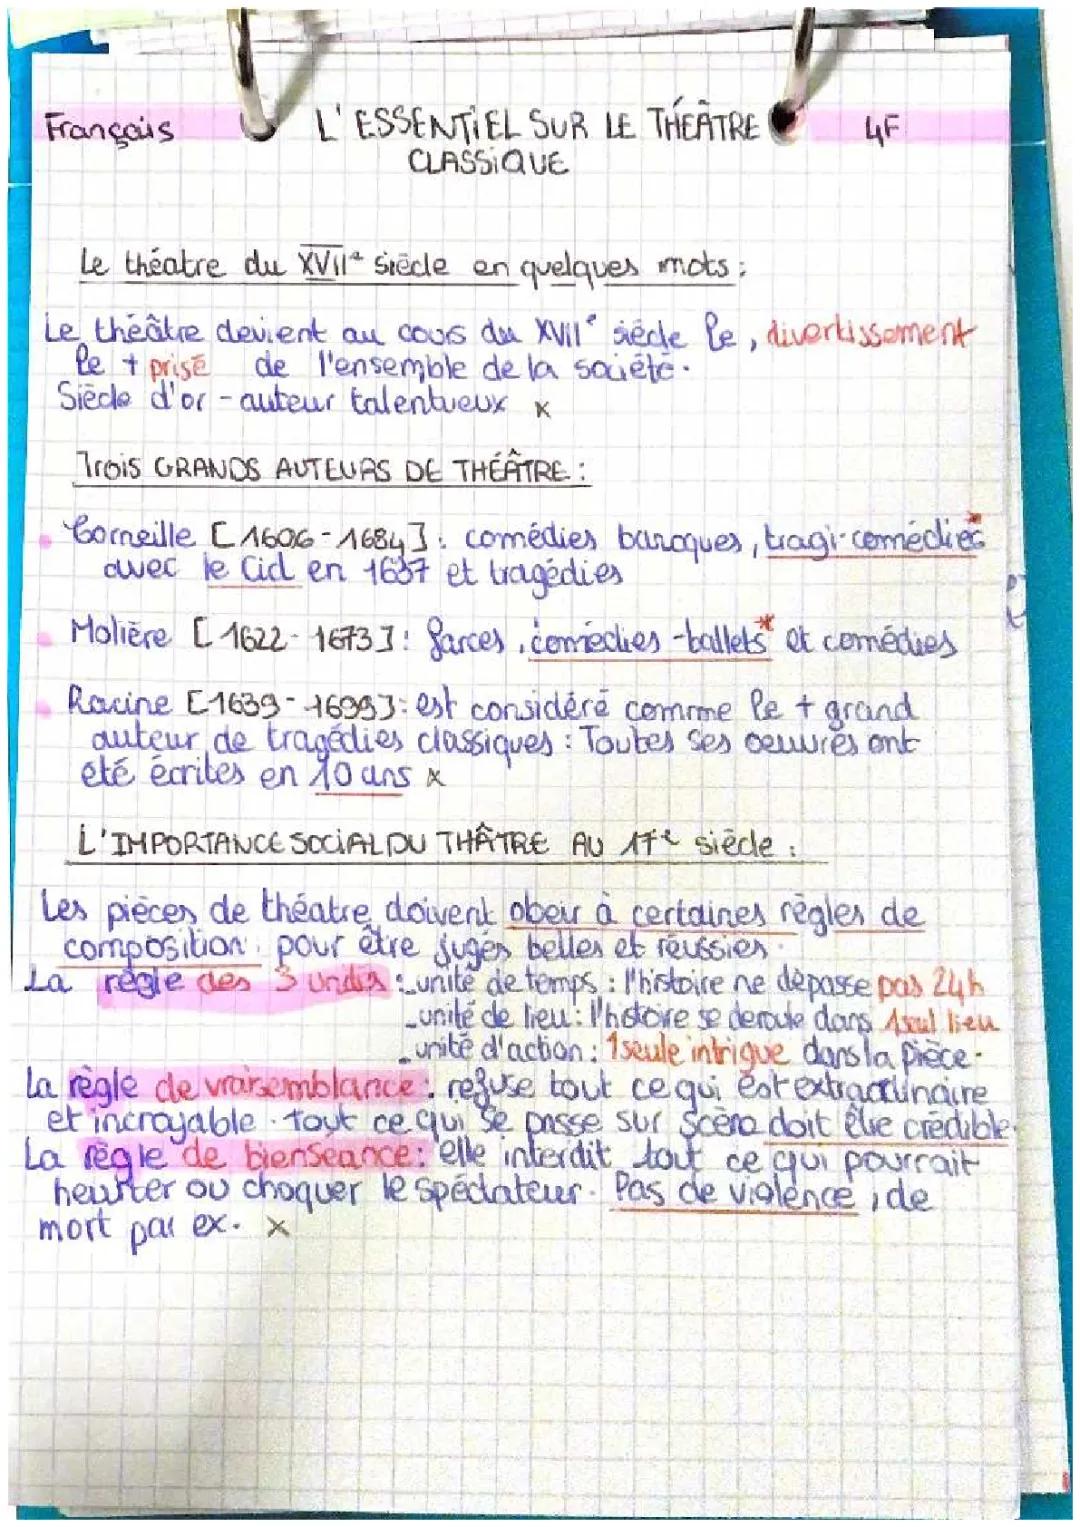 Français L'ESSENTIEL SUR LE THÉÂTRE 4F
CLASSIQUE
Le théatre du XVIIe siècle en quelques mots :
Le théâtre devient au cours du XVIIe siècle le , divertissement
le + prisé de l'ensemble de la société.
Siècle d'or - auteur talentueux x
Trois GRANDS AUTEURS DE THÉÂTRE :
Corneille [1606-1684] : comédies baroques, tragi-comédies*
avec le Cid en 1637 et tragédies
Molière [1622-1673] : farces, comédies-ballets* et comédies
Racine [1639-1699] : est considéré comme le + grand
auteur de tragédies classiques : Toutes ses oeuvres ont
été écrites en 10 ans x
L'IMPORTANCE SOCIAL DU THÂTRE AU 17e siècle :
Les pièces de théatre doivent obeir à certaines règles de
composition pour être jugés belles et réussies.
La règle des 3 unités : -unité de temps : l'histoire ne dépasse pas 24h
-unité de lieu : l'histoire se deroule dans 1 seul lieu
-unité d'action : 1 seule intrigue dans la pièce.
La règle de vraisemblance : refuse tout ce qui est extraordinaire
et incroyable. tout ce qui se passe sur scène doit être crédible.
La règle de bienséance : elle interdit tout ce qui pourrait
heurter ou choquer le spéctateur. Pas de violence, de
mort par ex. x